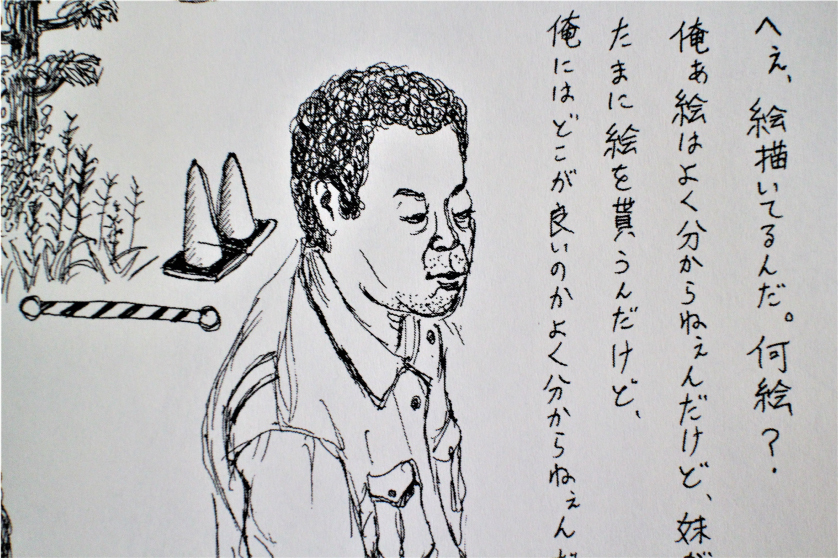 へぇ、絵描いてるんだ。何絵？
俺ぁ絵はよく分からねぇんだけど、妹が
たまに絵を貰うんだけど、
俺にはどこが良いのかよく分からねぇんだ